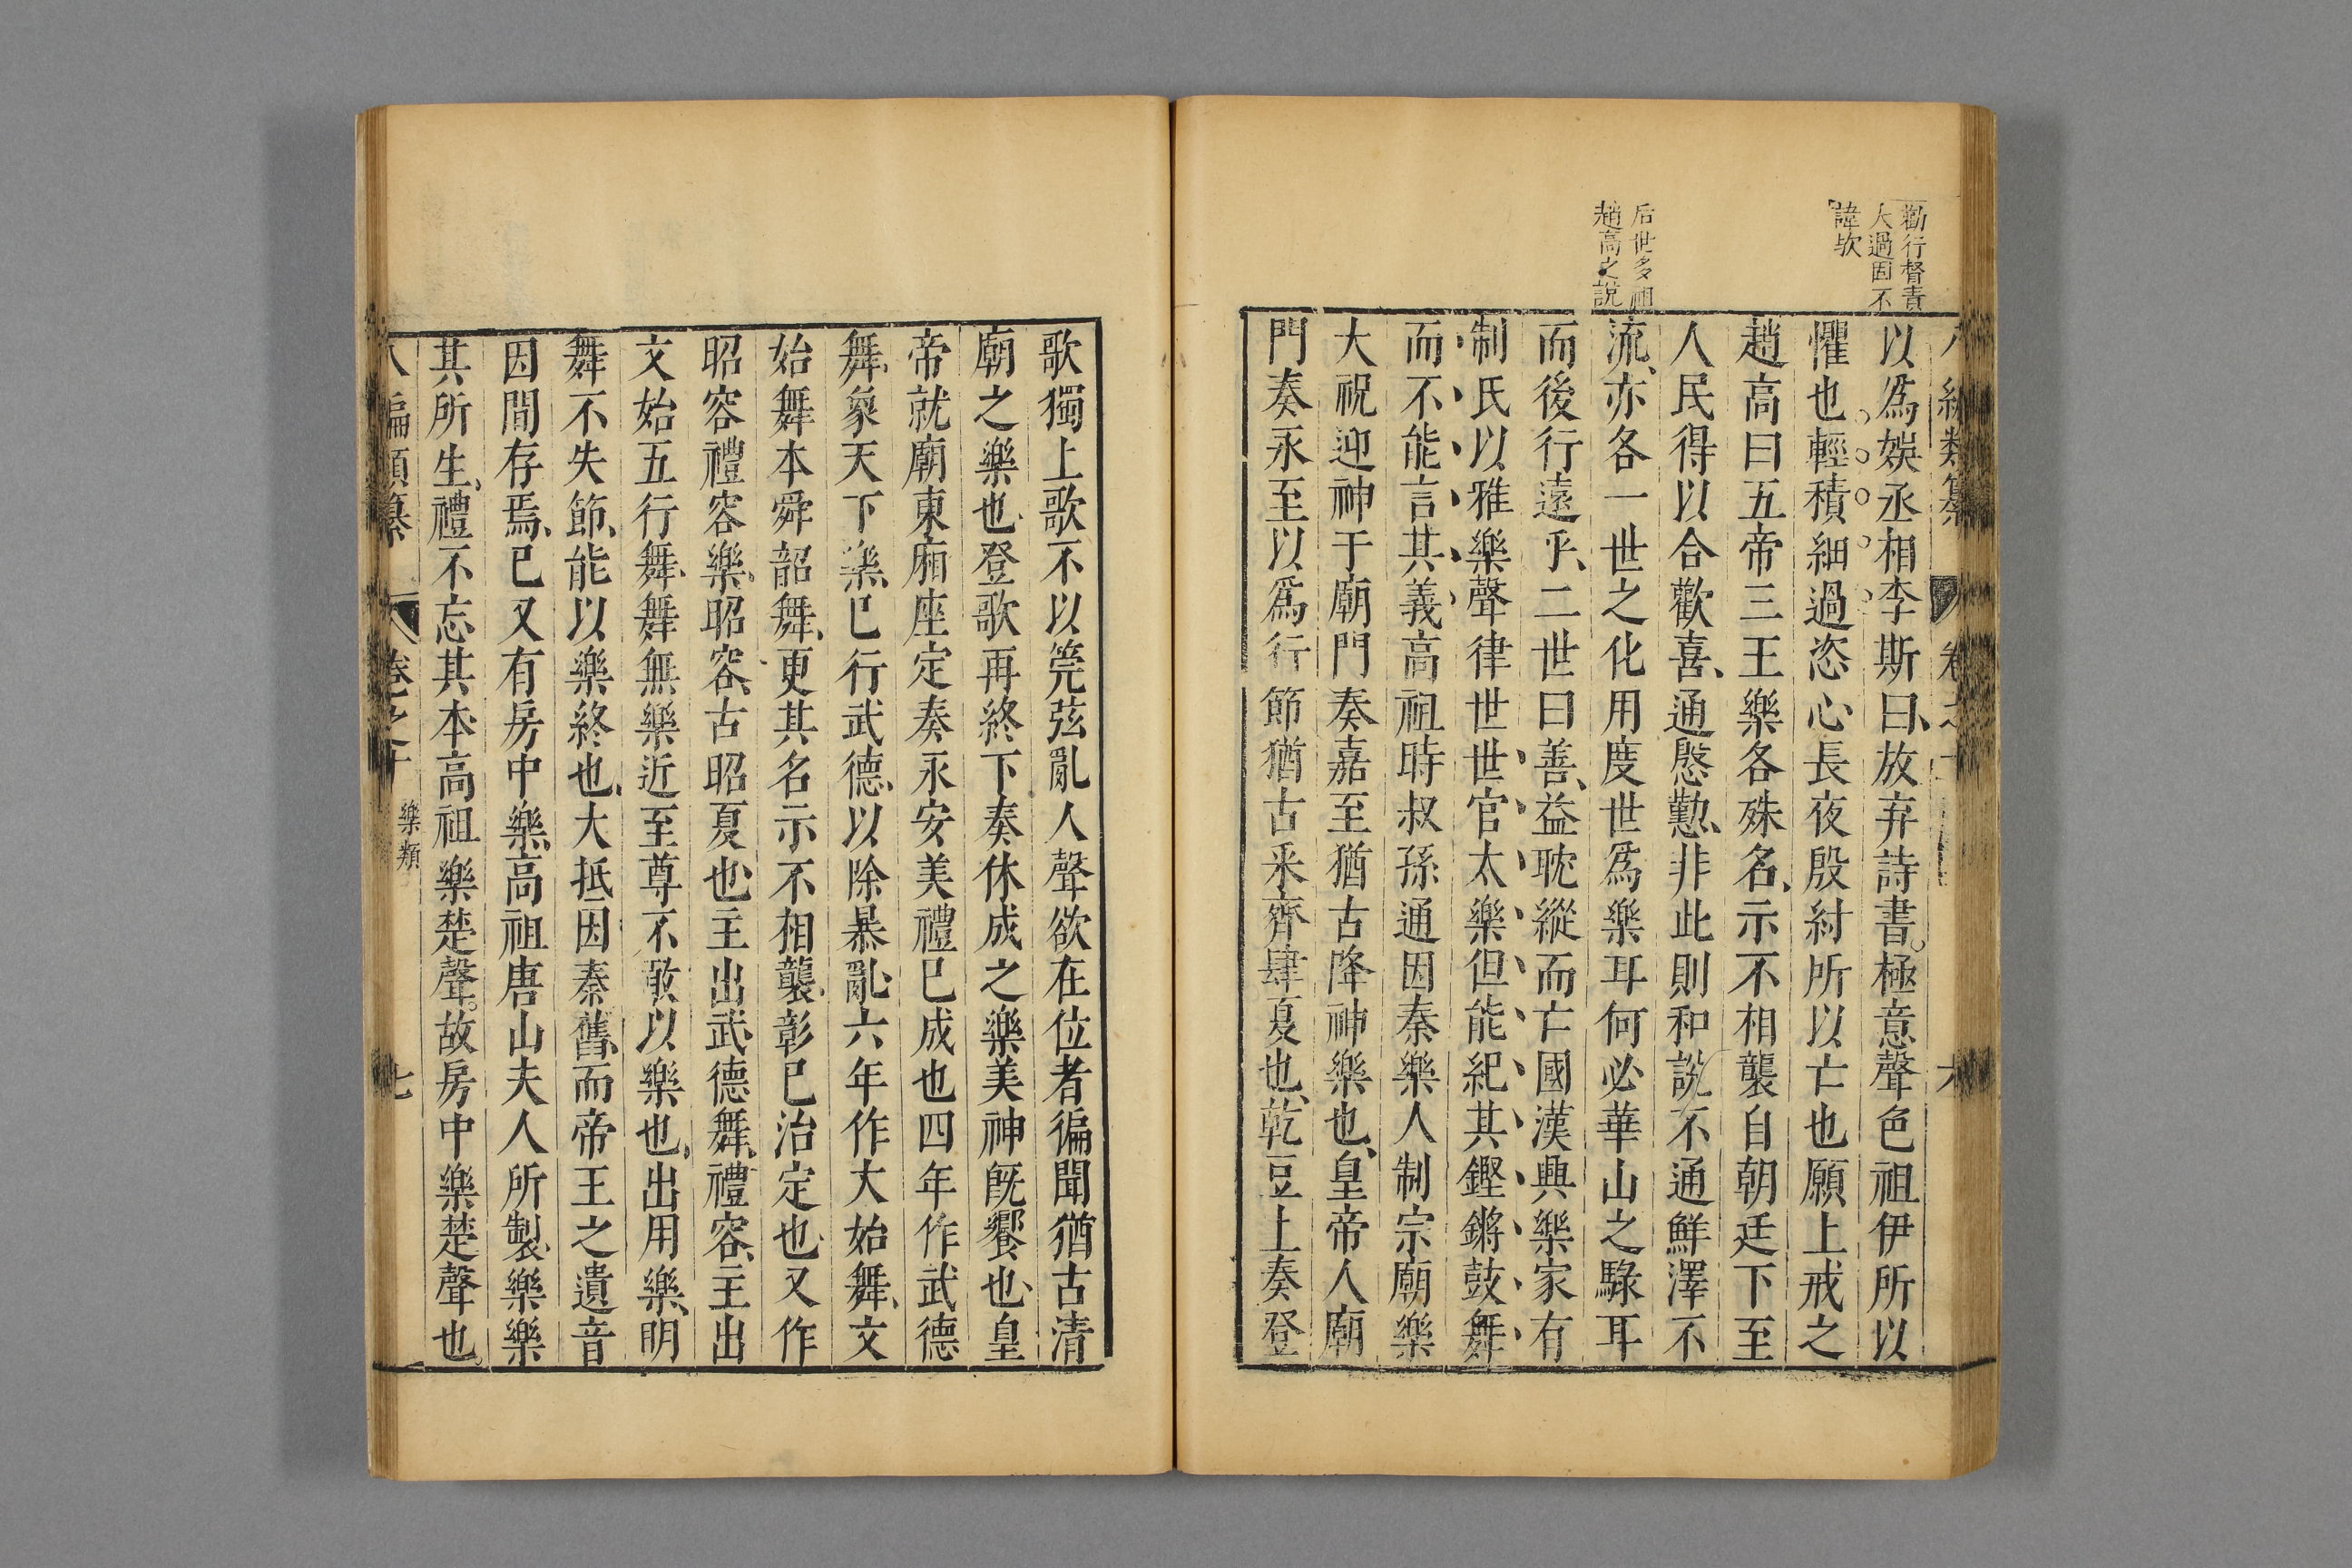 勸行督責
大過固不
諱歟
后世多祖
趙高之說
以爲娛丞相李斯曰、放弃詩書。極意聲色祖伊所以
懼也輕積細過恣心長夜殷紂所以亡也願上戒之
趙高曰五帝三王樂各殊名、示不相襲自朝廷下至
人民得以合歡喜、通慇懃、非此則和說不通鮮澤不
流、亦各一世之化用度世爲樂耳何必華山之騄耳
而後行遠乎、二世曰善、益耽縱而亡國漢興樂家有
制氏以雅樂聲律世世官太樂但能紀其鏗鏘鼓舞
而不能言其義高祖時叔孫通因秦樂人制宗廟樂
大祝迎神于廟門奏嘉至猶古降神樂也、皇帝人廟
門奏永至以爲行節猶古釆齊肆夏也、乾豆上奏登
歌獨上歌不以筦弦亂人聲欲在位者徧聞猶古清
廟之樂也、登歌再終下奏休成之樂美神旣饗也、皇
帝就廟東廂座定奏永安美禮已成也四年作武德
舞、象天下樂、已行武德、以除暴亂、六年作大始舞、文
始舞本舜韶舞、更其名示不相襲、彰已治定也、又作
昭容禮容樂、昭容、古昭夏也、主出武德舞、禮容、主出
文始五行舞、舞無樂近至尊不敢以樂也、出用樂、明
舞不失節、能以樂終也、大抵因秦舊、而帝王之遺音
因間存焉、已又有房中樂、高祖唐山夫人所製、樂樂
其所生、禮不忘其本、高祖樂楚聲。故房中樂楚聲也。
編類纂
卷之十
樂類
七